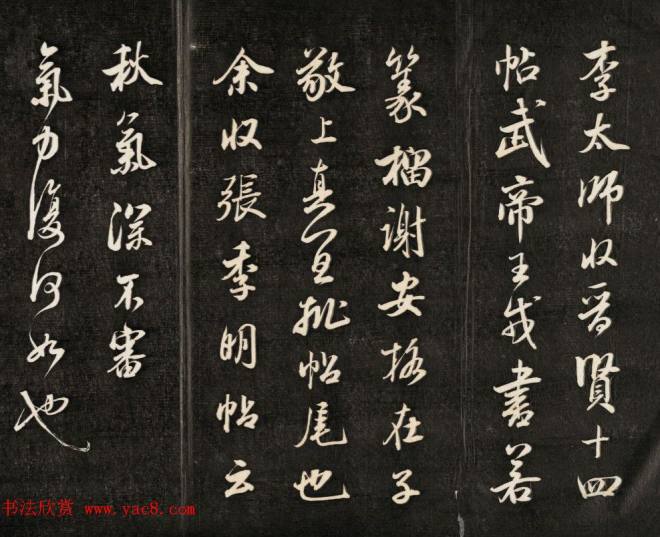 李太师收晋贤十四
帖武帝王戎书若
篆榴谢安格在子
敬上真宜批帖尾也
余收張季明帖云
秋氣深不審
氣力復何如也
书法欣赏 www.yac8.com